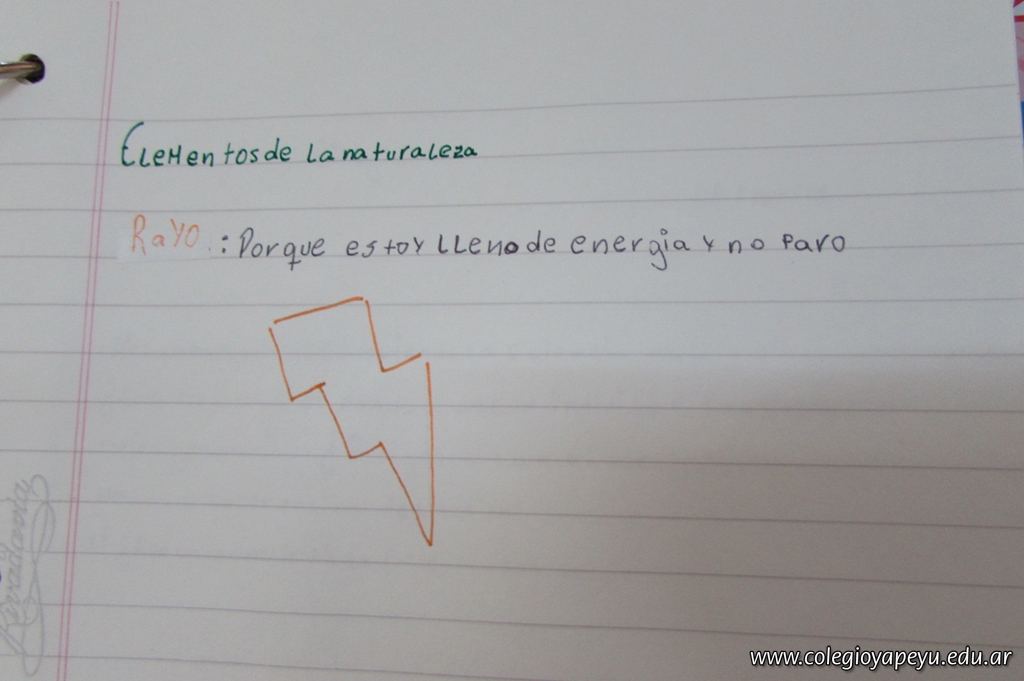 Elementos de la naturaleza
Rayo.: Porque estoy lleno de energia y no paro
Rivadavia
www.colegioyapeyu.edu.ar